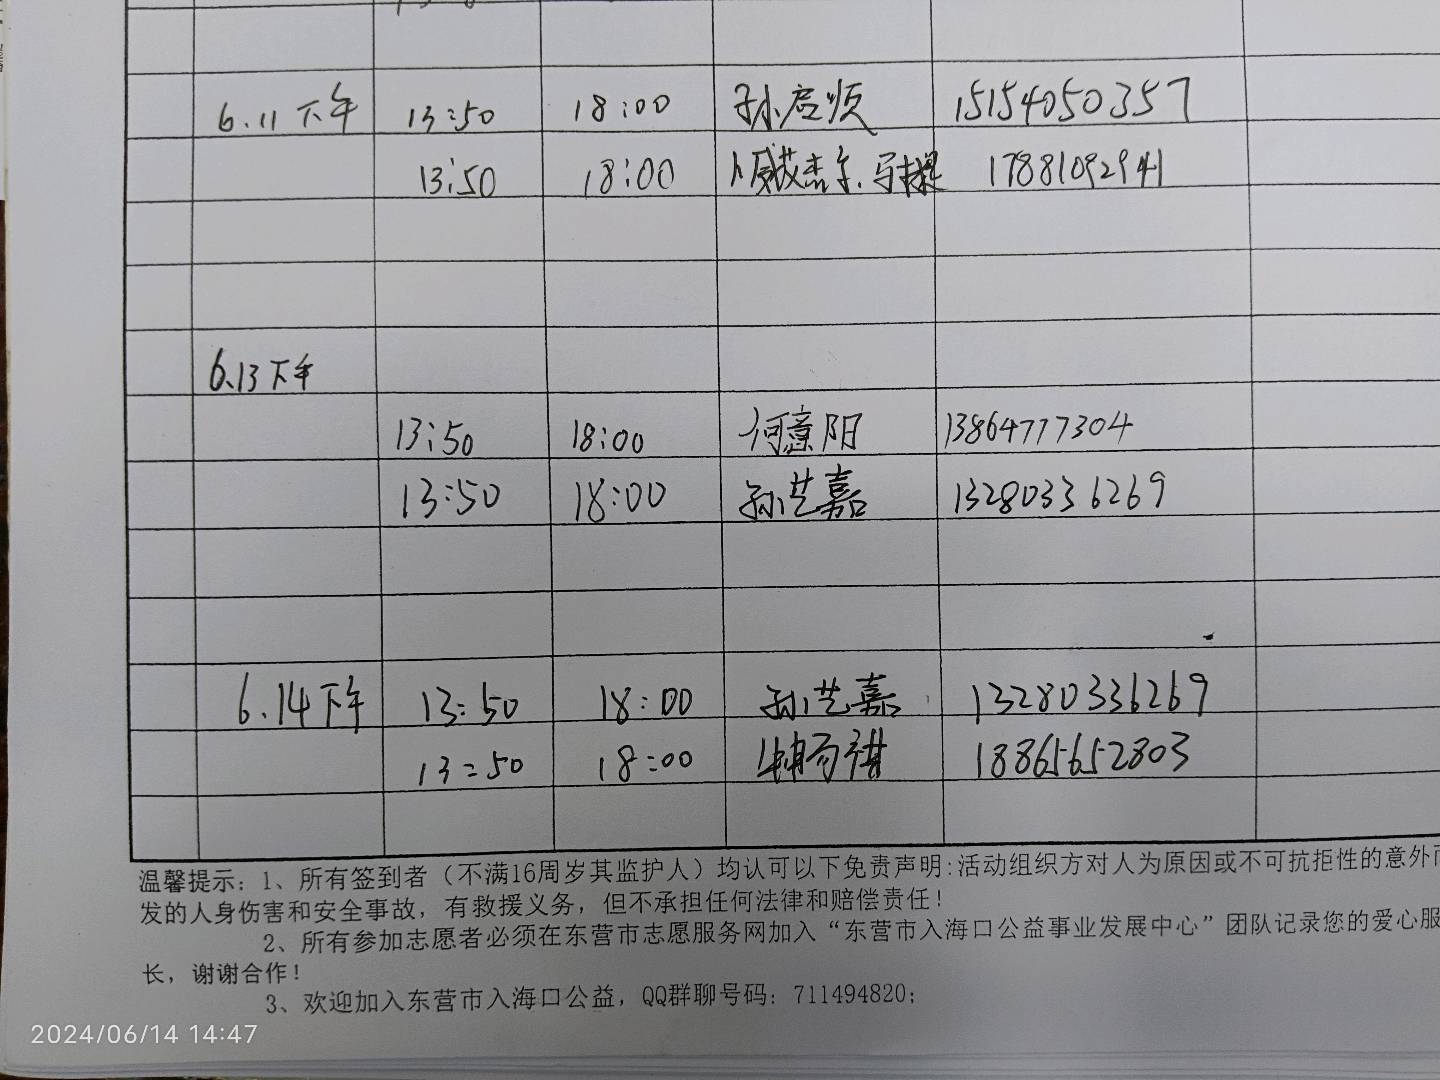 6.11 下午 13:50 18:00 孙启顺 15154050357
13:50 18:00 17881092941
6.13下午
13:50 18:00 何意阳 13864777304
13:50 18:00 孙艺嘉 13280336269
6.14下午 13:50 18:00 孙艺嘉 13280336269
13:50 18:00 18865652803
温馨提示：1、所有签到者（不满16周岁其监护人）均认可以下免责声明：活动组织方对人为原因或不可抗拒性的意外而
发的人身伤害和安全事故，有救援义务，但不承担任何法律和赔偿责任！
2、所有参加志愿者必须在东营市志愿服务网加入“东营市入海口公益事业发展中心”团队记录您的爱心服
长，谢谢合作！
3、欢迎加入东营市入海口公益，QQ群聊号码：711494820；
2024/06/14 14:47